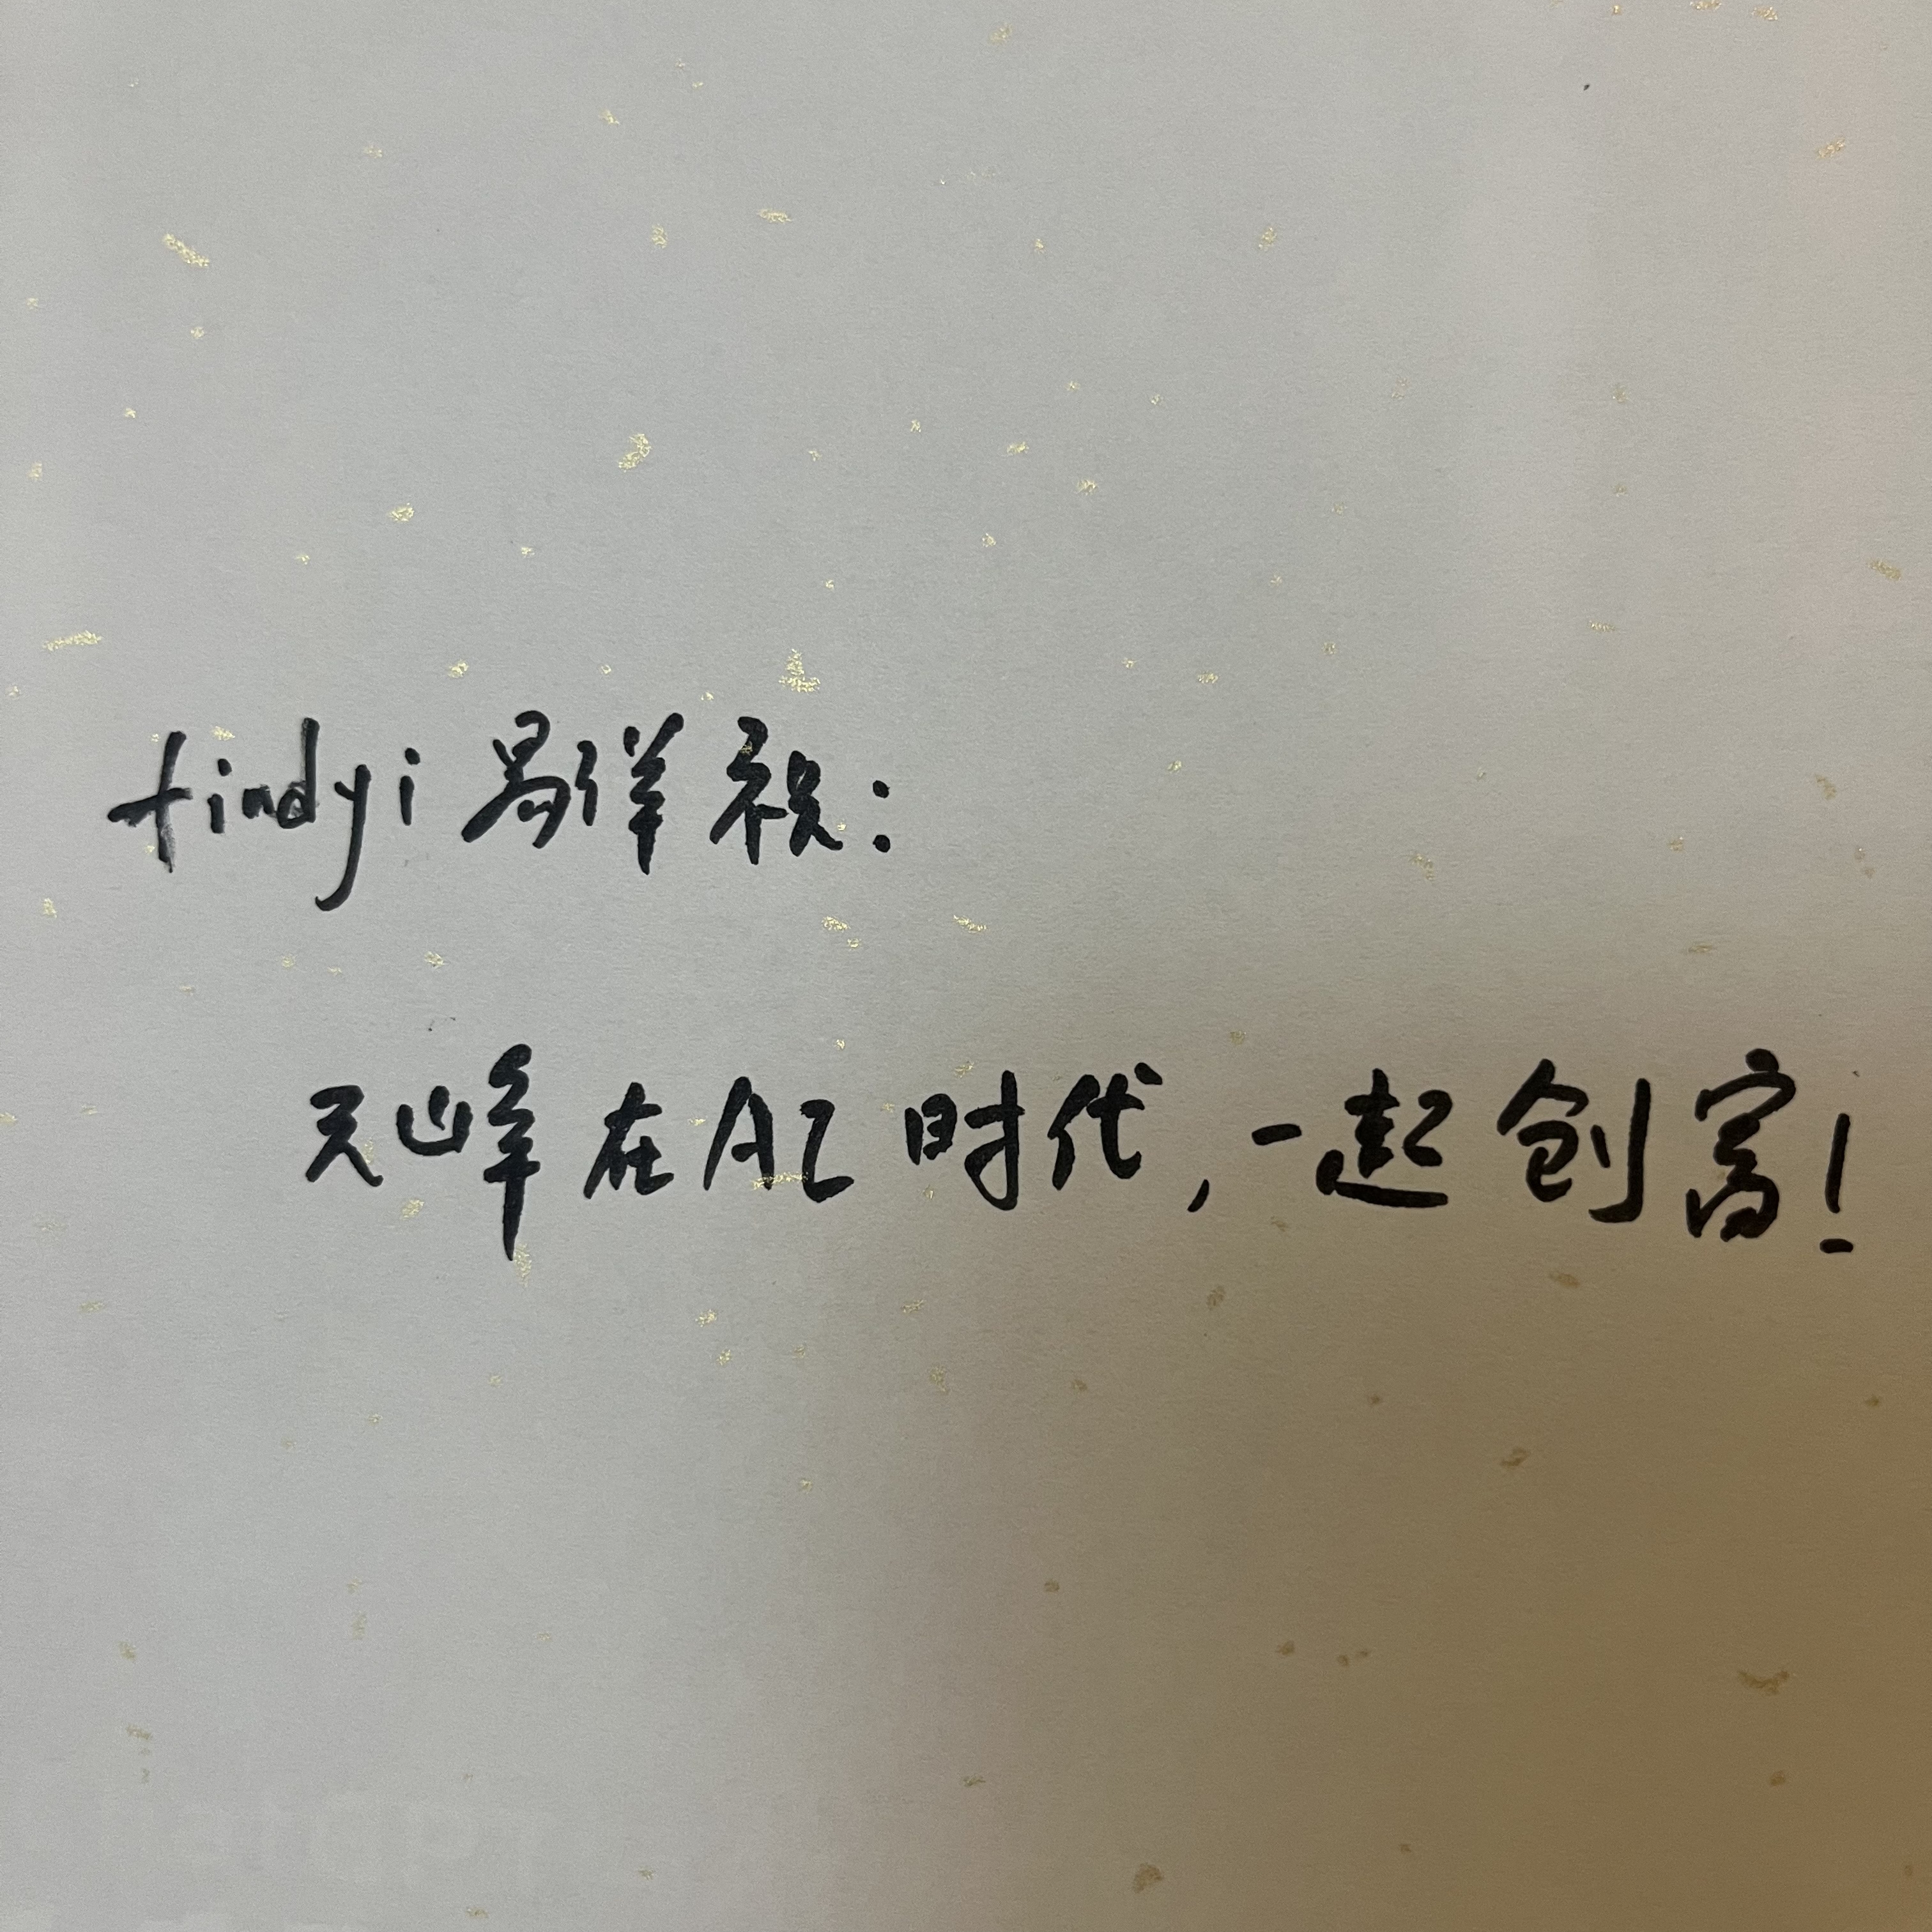 findyi 易洋 祝:
天峰 在AI 时代,一起创富!